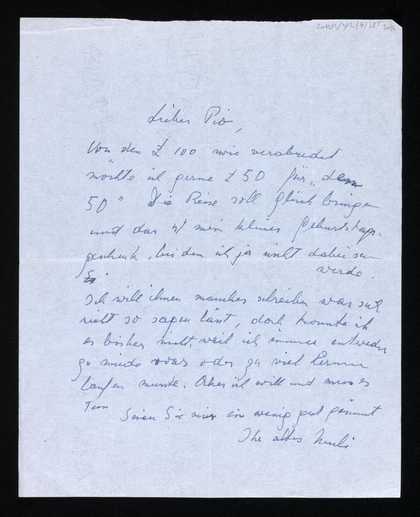 Lieber Pio,
Von den £ 100 wie verabredet
möchte ich gerne £ 50 für "dem
50" Die Reise soll Glück bringen
und das ist mein kleines Geburtstags-
geschenk, bei dem ich ja nicht dabei sein
werde.
Ich will Ihnen manches schreiben was sich
nicht so sagen lässt, doch konnte ich
es bisher nicht weil ich immer entweder
zu müde war oder zu viel herum
laufen musste. Aber ich will und muss es
tun
Seien Sie mir ein wenig gut gesinnt
Ihr altes